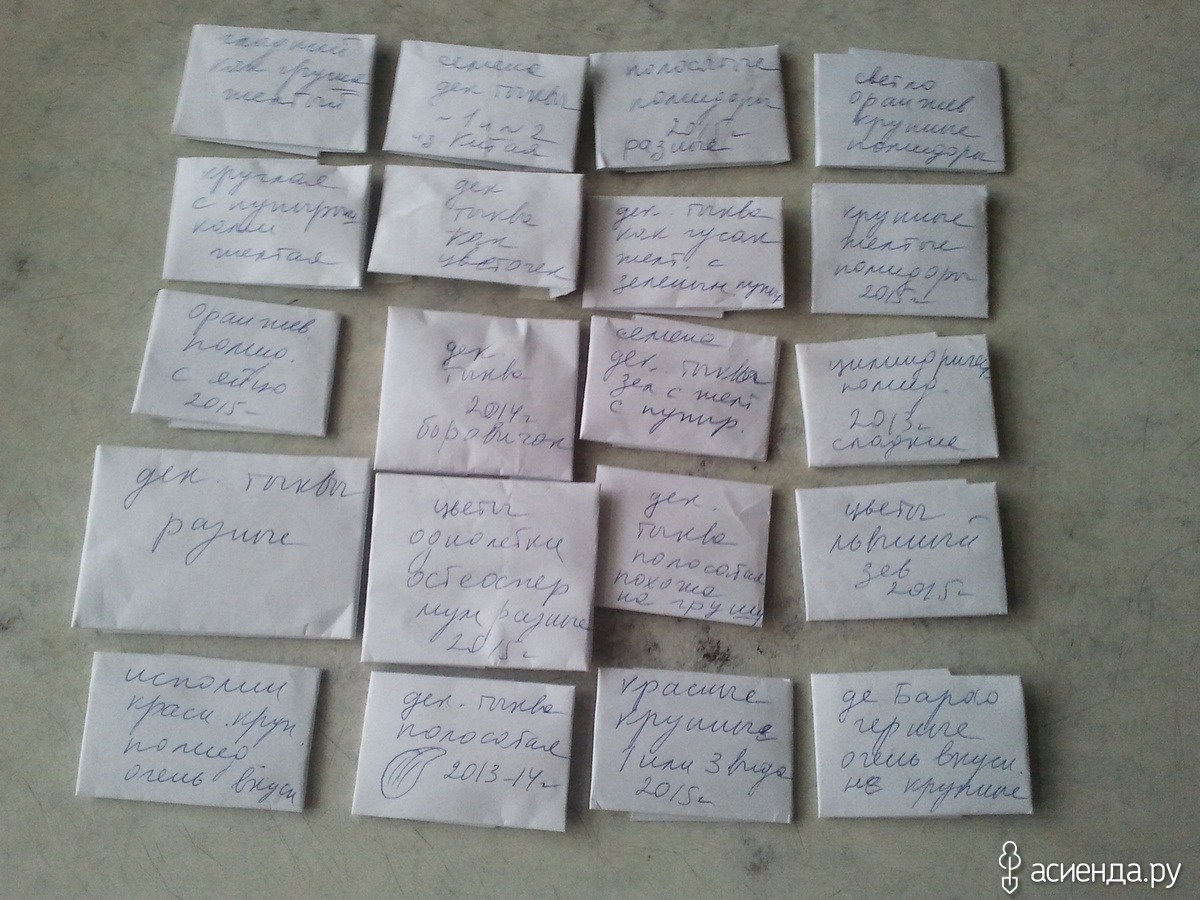 гладкий
как груша
желтый
семена
дек тыквы
~1 и ~2
из Китая
полосатые
помидоры
2015г
разные
светло
оранжев
крупные
помидоры
круглая
с пупырыш
ками
желтая
дек
тыква
как
цветочек
дек. тыква
как гусак
желт. с
зелеными пупыр
крупные
желтые
помидоры
2015г
оранжев
помид.
с яйцо
2015г
дек.
тыква
2014г
боровичок
семена
дек. тыквы
зел с желт
с пупыр.
цилиндрическ
помид.
2013г
сладкие
дек. тыквы
разные
цветы
однолетки
остеоспер
мум разные
2015г
дек.
тыква
полосатая
похожа
на грушу
цветы
львиный
зев
2015г
исполин
красн. круп.
помид
очень вкусн
дек. тыква
полосатая
2013-14г
красные
крупные
1 или 3 вида
2015г
де Барао
черные
очень вкусн.
не крупные
асиенда.ру